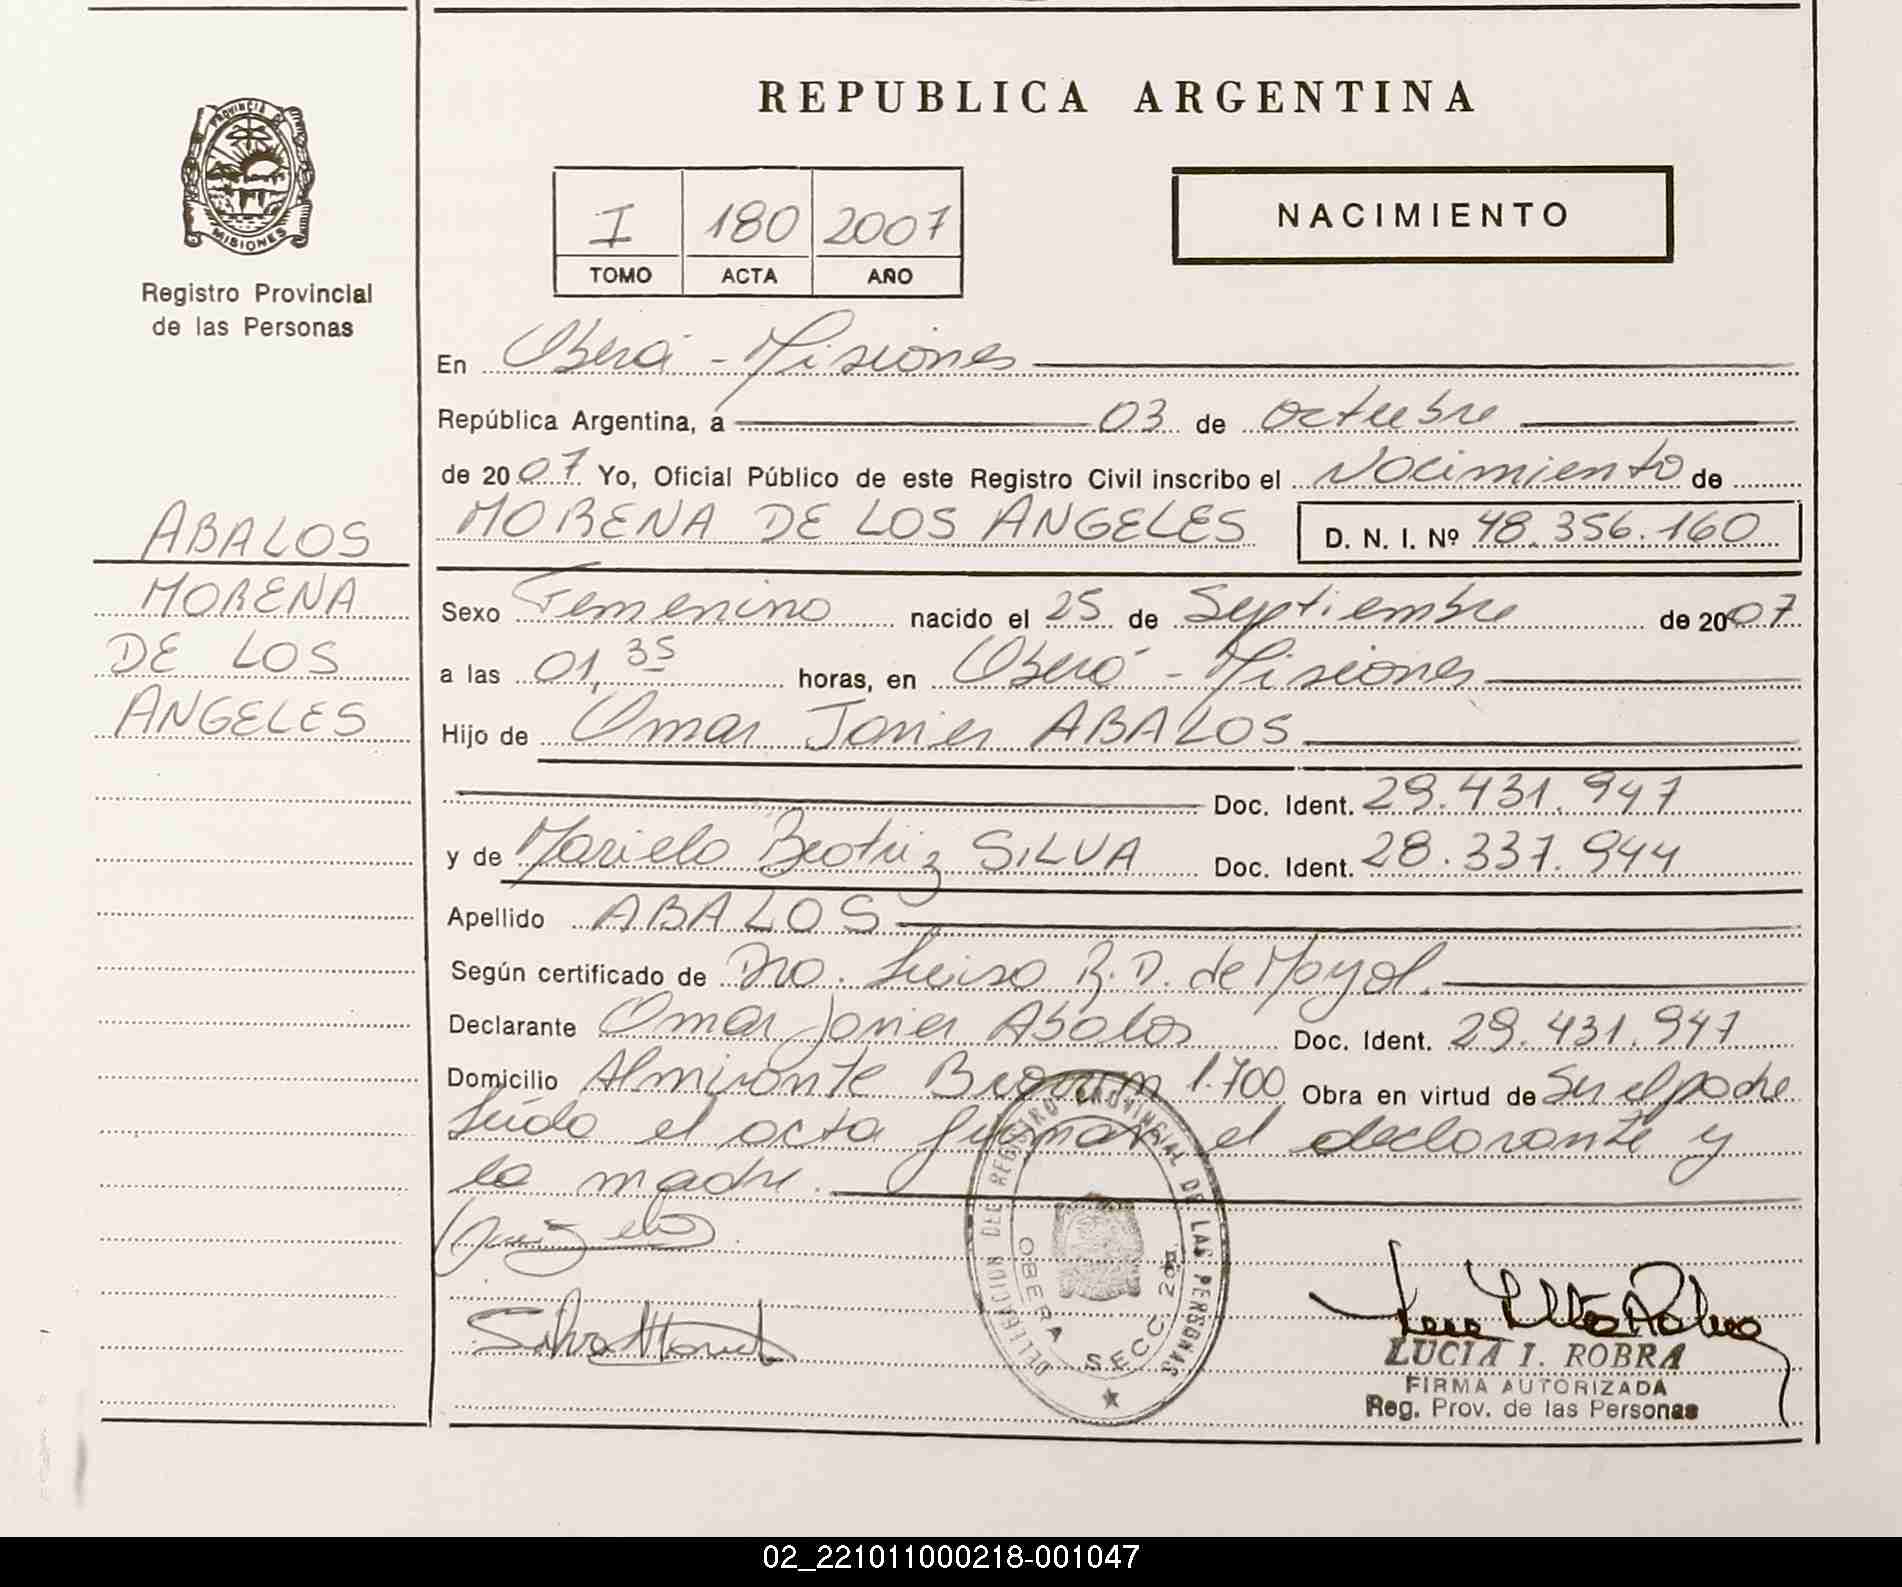 REPUBLICA ARGENTINA
PROVINCIA DE
MISIONES
Registro Provincial
de las Personas
I 180 2007
TOMO ACTA AÑO
NACIMIENTO
En Oberá - Misiones
República Argentina, a 03 de octubre
de 2007 Yo, Oficial Público de este Registro Civil inscribo el Nacimiento de
MORENA DE LOS ANGELES D. N. I. Nº 48.356.160
ABALOS
MORENA
DE LOS
ANGELES
Sexo Femenino nacido el 25 de Septiembre de 2007
a las 01,35 horas, en Oberá - Misiones
Hijo de Omar Javier ABALOS
Doc. Ident. 29.431.947
y de Mariela Beatriz SILVA Doc. Ident. 28.337.944
Apellido ABALOS
Según certificado de Dra. Luisa R. D. de Mayol.
Declarante Omar Javier Abalos Doc. Ident. 29.431.947
Domicilio Almirante Brown 1.700 Obra en virtud de Ser el padre
Leída el acta firman el declarante y
la madre.
DELEGACION DEL REGISTRO PROVINCIAL DE LAS PERSONAS
OBERA SECC. 2ª
LUCIA I. ROBRA
FIRMA AUTORIZADA
Reg. Prov. de las Personas
02_221011000218-001047